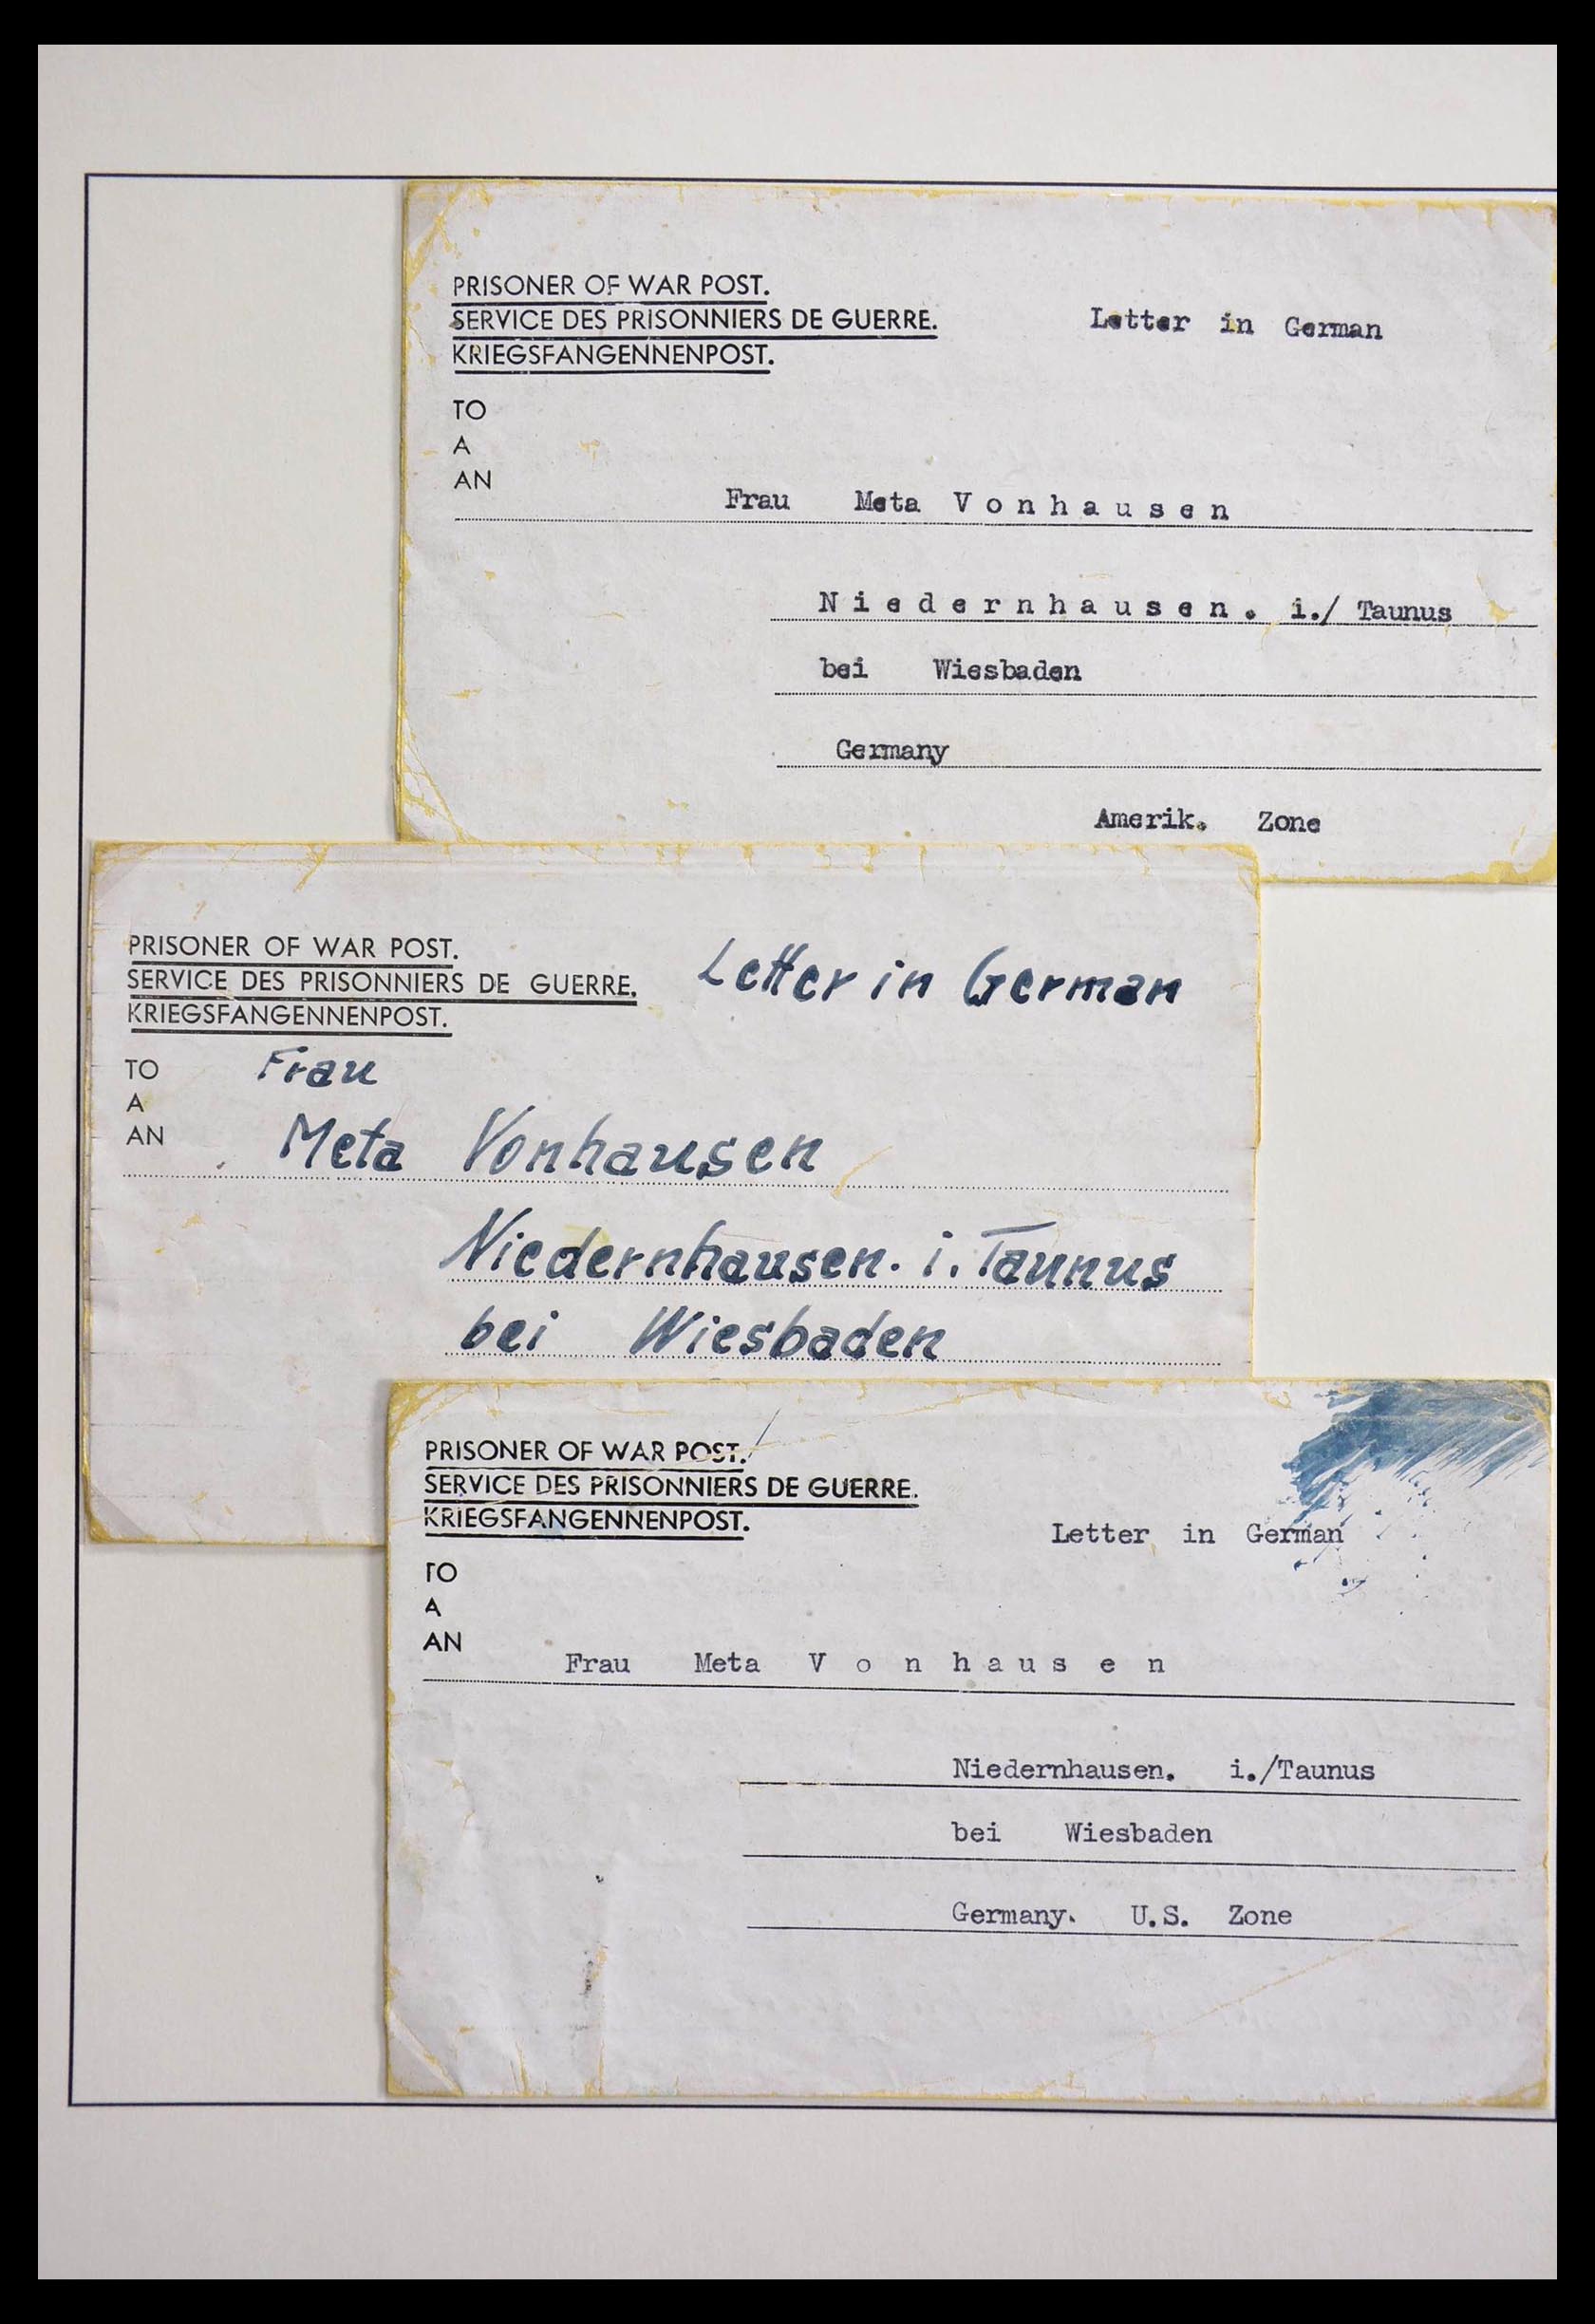 PRISONER OF WAR POST.
SERVICE DES PRISONNIERS DE GUERRE.
KRIEGSFANGENNENPOST.
Letter in German
TO
A
AN
Frau Meta Vonhausen
Niedernhausen. i./ Taunus
bei Wiesbaden
Germany
Amerik. Zone
PRISONER OF WAR POST.
SERVICE DES PRISONNIERS DE GUERRE.
KRIEGSFANGENNENPOST.
Letter in German
TO
Frau
A
AN
Meta Vonhausen
Niedernhausen. i. Taunus
bei Wiesbaden
PRISONER OF WAR POST.
SERVICE DES PRISONNIERS DE GUERRE.
KRIEGSFANGENNENPOST.
Letter in German
TO
A
AN
Frau Meta Vonhausen
Niedernhausen. i./Taunus
bei Wiesbaden
Germany. U.S. Zone